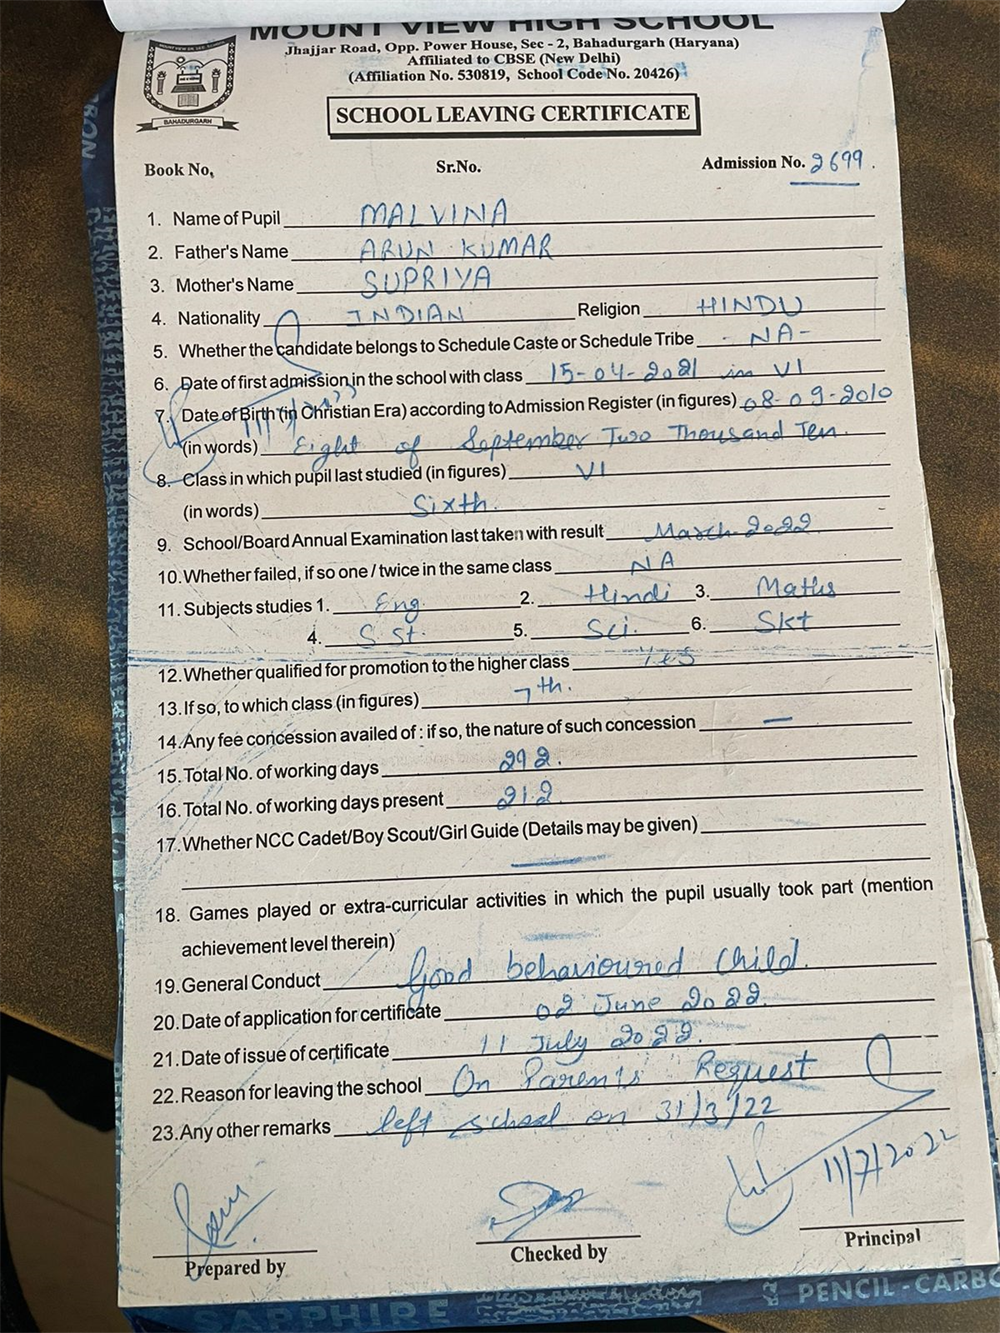 MOUNT VIEW HIGH SCHOOL
Jhajjar Road, Opp. Power House, Sec - 2, Bahadurgarh (Haryana)
Affiliated to CBSE (New Delhi)
(Affiliation No. 530819, School Code No. 20426)
BAHADURGARH
SCHOOL LEAVING CERTIFICATE
Book No, Sr.No. Admission No. 2699.
1. Name of Pupil MALVINA
2. Father's Name ARUN KUMAR
3. Mother's Name SUPRIYA
4. Nationality INDIAN Religion HINDU
5. Whether the candidate belongs to Schedule Caste or Schedule Tribe - NA -
6. Date of first admission in the school with class 15-04-2021 in VI
7. Date of Birth (in Christian Era) according to Admission Register (in figures) 08-09-2010
(in words) Eight of September Two Thousand Ten.
8. Class in which pupil last studied (in figures) VI
(in words) Sixth.
9. School/Board Annual Examination last taken with result March-2022
10. Whether failed, if so one / twice in the same class NA
11. Subjects studies 1. Eng. 2. Hindi 3. Maths
4. S.St. 5. Sci. 6. Skt
12. Whether qualified for promotion to the higher class Yes
13. If so, to which class (in figures) 7th.
14. Any fee concession availed of : if so, the nature of such concession —
15. Total No. of working days 292.
16. Total No. of working days present 212
17. Whether NCC Cadet/Boy Scout/Girl Guide (Details may be given)
—
18. Games played or extra-curricular activities in which the pupil usually took part (mention
achievement level therein) —
19. General Conduct Good behavioured Child.
20. Date of application for certificate 02 June 2022.
21. Date of issue of certificate 11 July 2022.
22. Reason for leaving the school On Parents Request
23. Any other remarks left school on 31/3/22
11/7/2022
Prepared by Checked by Principal
SAPPHIRE PENCIL-CARBO